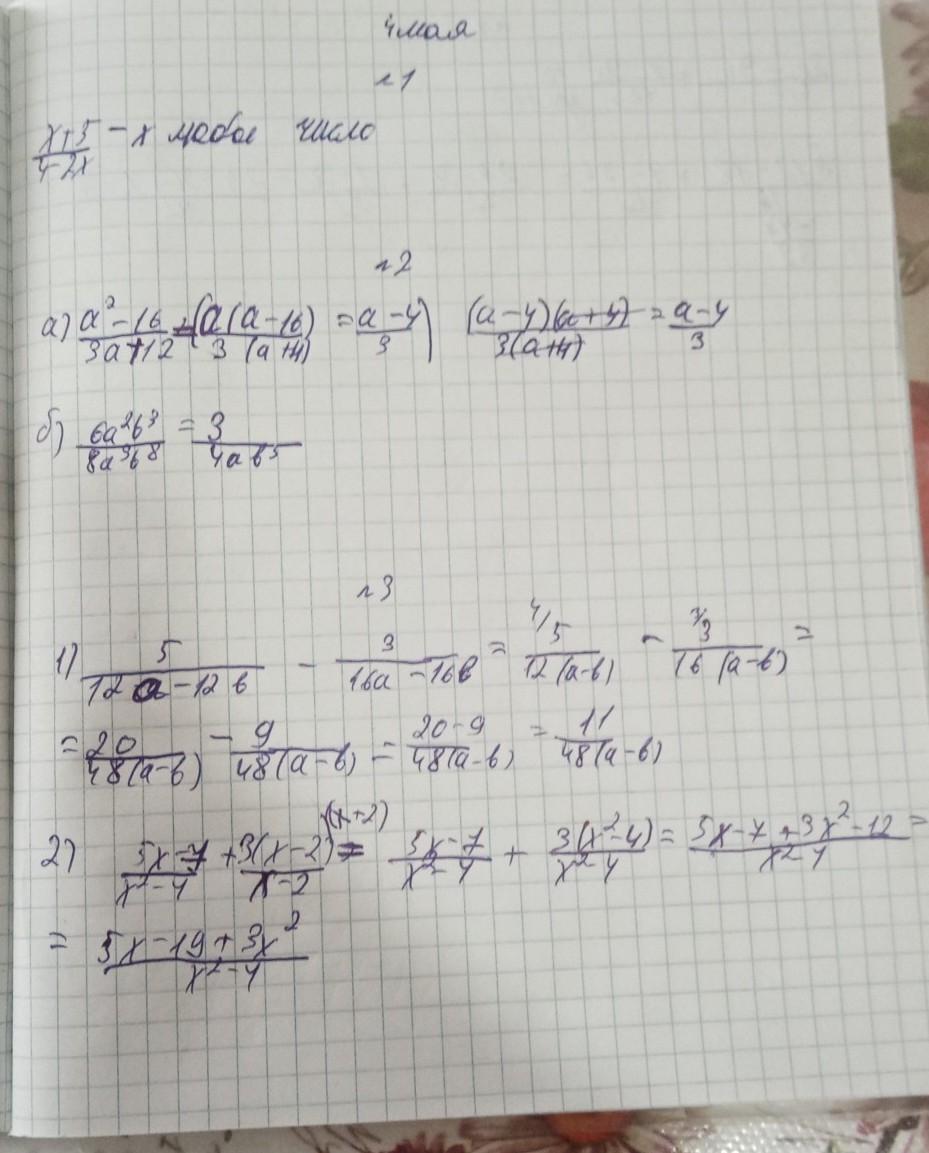 4 мая
№1
(x+5)/(4-2x) - x любое число
№2
а) (a²-16)/(3a+12) = (a(a-16))/(3(a+4)) = (a-4)/3) ((a-4)(a+4))/(3(a+4)) = (a-4)/3
б) (6a²b³)/(8a³b⁸) = 3/(4ab⁵)
№3
1) 5/(12a-12b) - 3/(16a-16b) = 4/5/(12(a-b)) - 3/3/(16(a-b)) =
= 20/(48(a-b)) - 9/(48(a-b)) = (20-9)/(48(a-b)) = 11/(48(a-b))
2) (5x-7)/(x²-4) + (3(x-2)(x+2))/(x-2) = (5x-7)/(x²-4) + (3(x²-4))/(x²-4) = (5x-7+3x²-12)/(x²-4) =
= (5x-19+3x²)/(x²-4)